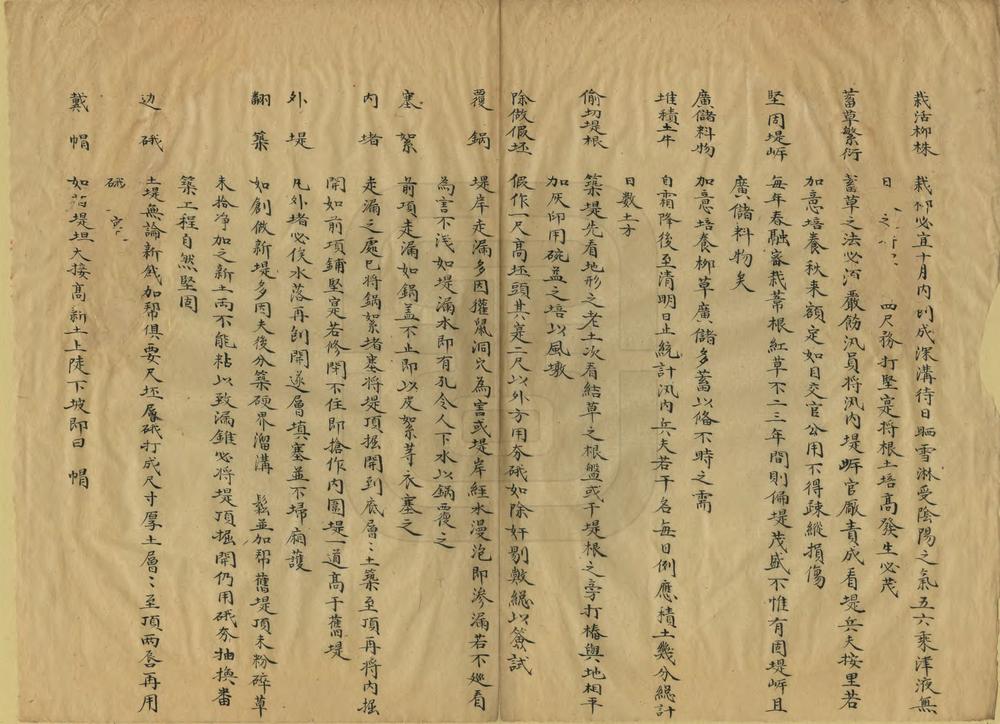 栽活柳株　栽柳必宜十月内刨成深溝待日晒雪淋受陰陽之氣五六乘津液無
日之　四尺務打堅寔將根土培高發生必茂
蓄草繁衍　蓄草之法必須嚴飭汛員將汛内堤岸官廠責成看堤兵夫按里若
加意培養秋来額定如日交官公用不得踈縱損傷
堅固堤岸　每年春融審栽蒂根紅草不二三年間則偏堤茂盛不惟有固堤岸且
廣儲料物矣
廣儲料物　加意培養柳草廣儲多蓄以俻不時之需
堆積土牛　自霜降後至清明日止統計汛内兵夫若干名每日例應積土幾分縂計
日数土方
偷切堤根　築堤先看地形之老土次看結草之根盤或于堤根之旁打樁與地相平
加灰印用碗盖之培以風墩
除做假坯　假作一尺高坯頭其寔二尺以外方用夯硪如除奸剔斃縂以簽試
覆鍋　堤岸走漏多因獾鼠洞穴為害或堤岸經水漫泡即滲漏若不廵看
為害不浅如堤漏水即有孔令人下水以鍋覆之
塞絮　前項走漏如鍋盖不止即以皮絮等衣塞之
内堵　走漏之處已將鍋絮堵塞將堤頂掘開到底層〻土築至頂再將内掘
開如前項鋪堅寔若修閉不住即搶作内圍堤一道高于舊堤
外堤　凡外堵必俟水落再刨開遂層填塞並不埽廂護
翻築　如創做新堤多因夫後分築硬界溜溝　鬆並加帮舊堤頂未粉碎草
未拾净加之新土両不能粘以致漏錐必將堤頂掘開仍用硪夯抽換番
築工程自然堅固
边硪　土堤無論新戧加帮俱要尺坯層硪打成尺寸厚土層〻至頂両唇再用
硪　寔
戴帽　如　堤坦大接高新土上陡下坡即曰　帽